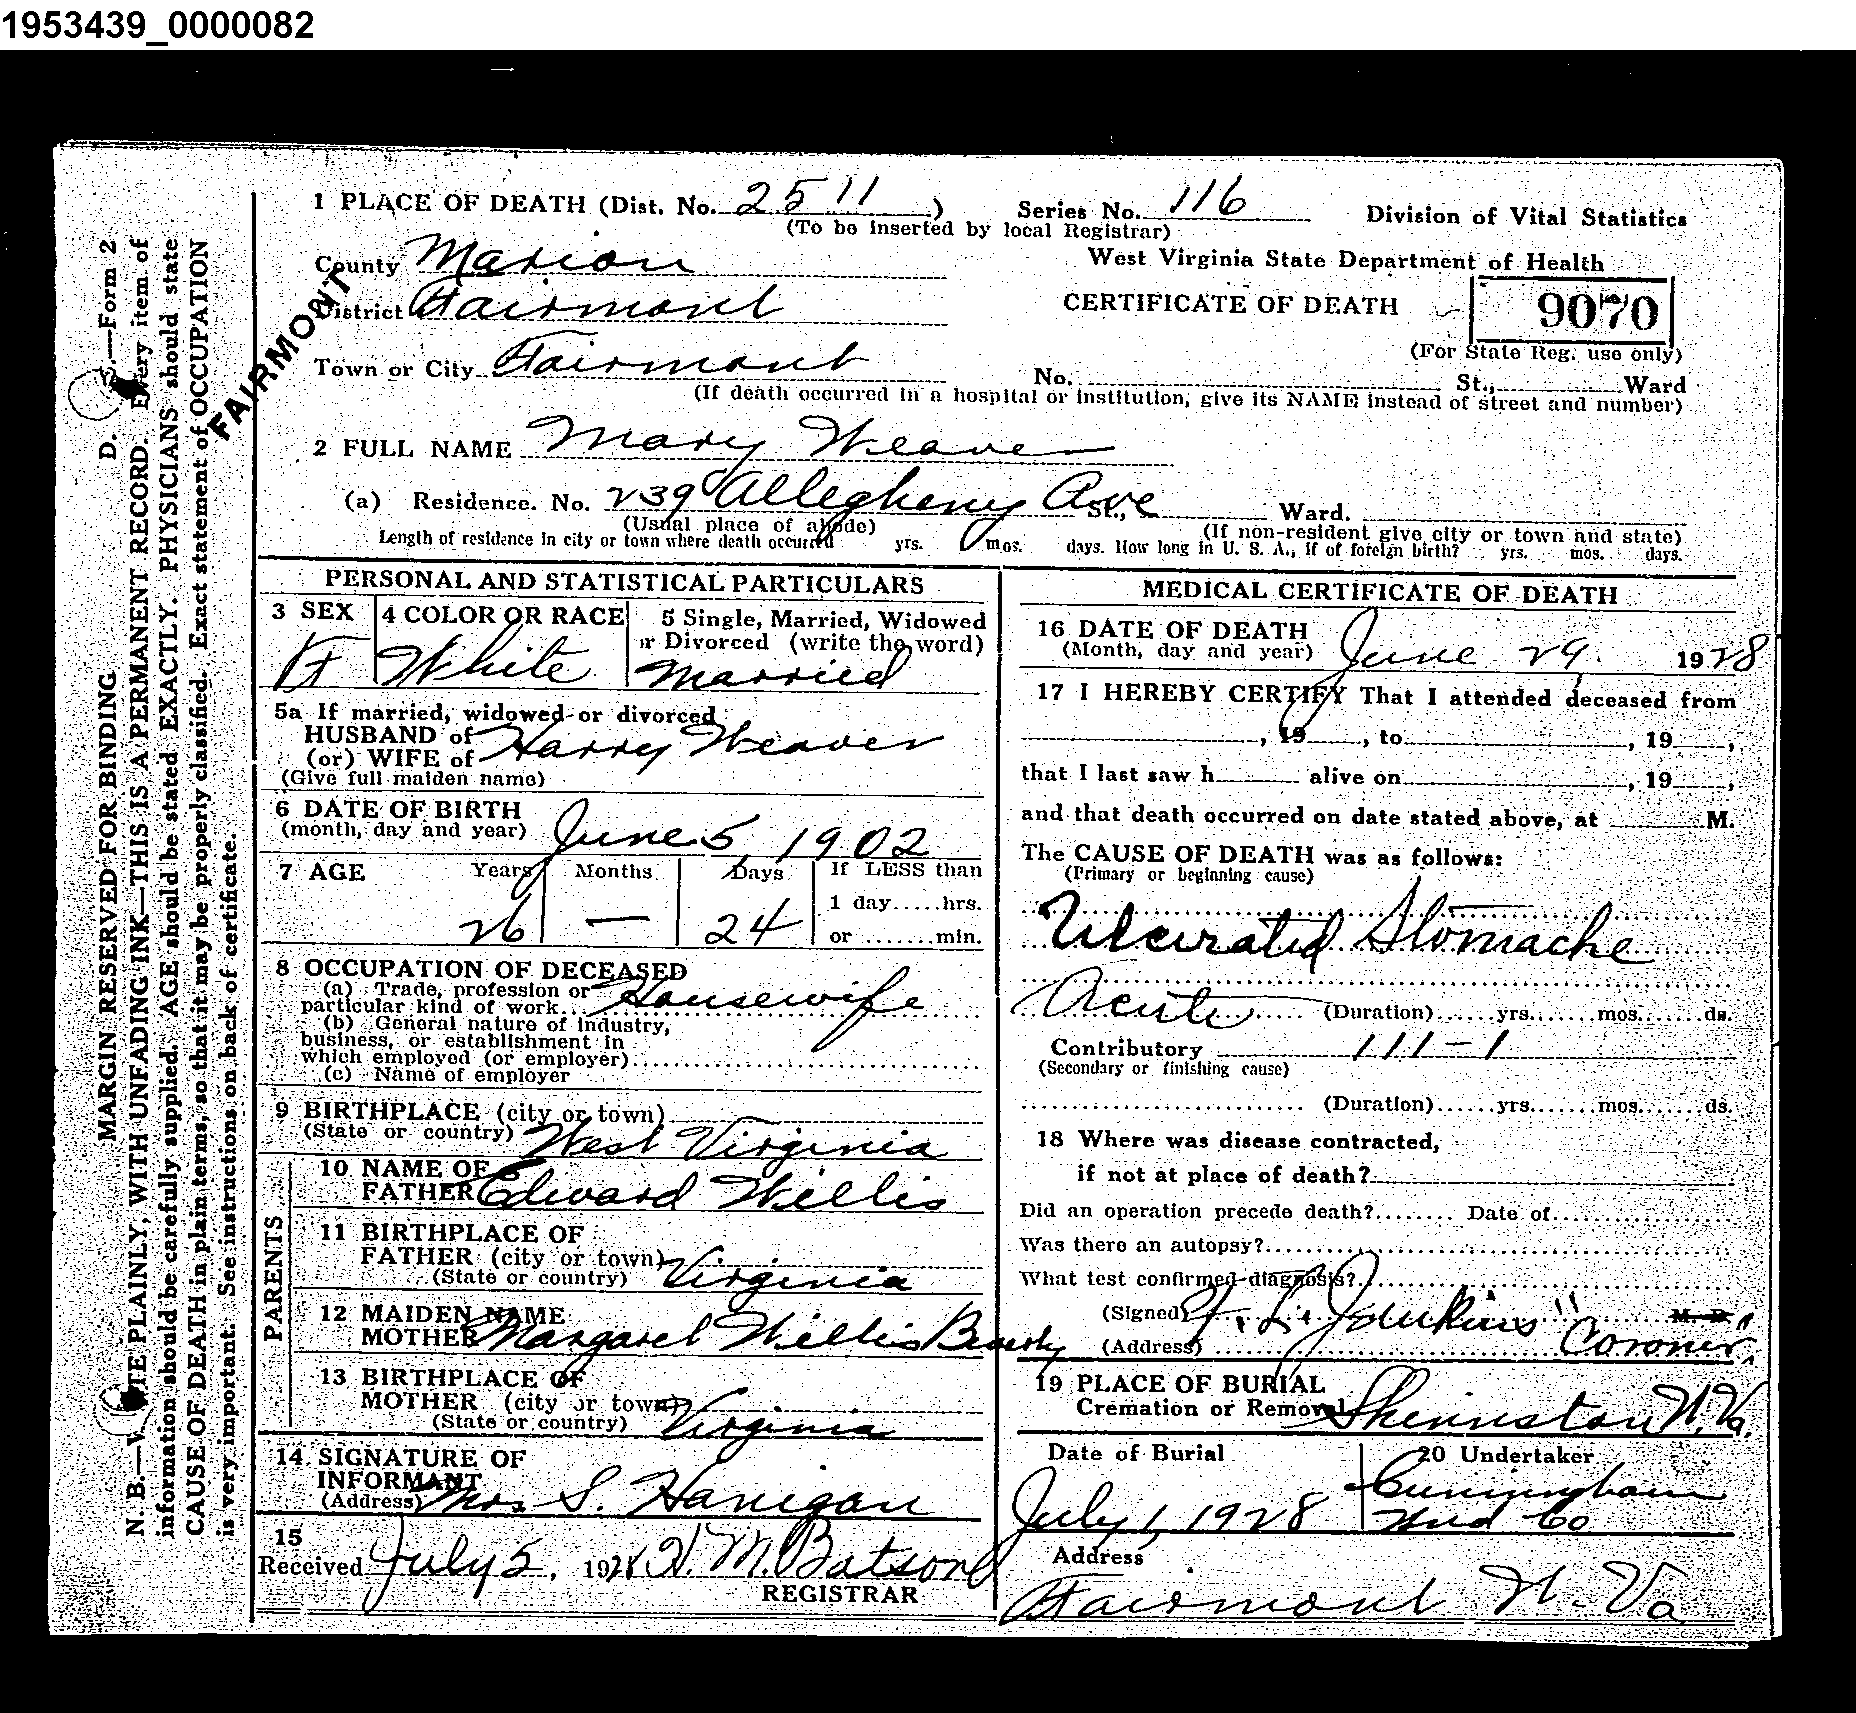 1953439_0000082
1 PLACE OF DEATH (Dist. No. 2511 ) Series No. 116 Division of Vital Statistics
(To be inserted by local Registrar)
County Marion West Virginia State Department of Health
District Fairmont CERTIFICATE OF DEATH 9070
FAIRMONT
(For State Reg. use only)
Town or City Fairmont No. St., Ward
(If death occurred in a hospital or institution, give its NAME instead of street and number)
2 FULL NAME Mary Weaver
(a) Residence. No. 239 Allegheny Ave St., Ward.
(Usual place of abode) (If non-resident give city or town and state)
Length of residence in city or town where death occurred yrs. mos. days. How long in U. S. A., if of foreign birth? yrs. mos. days.
PERSONAL AND STATISTICAL PARTICULARS
3 SEX 4 COLOR OR RACE 5 Single, Married, Widowed
or Divorced (write the word)
F White Married
5a If married, widowed or divorced
HUSBAND of
(or) WIFE of Harry Weaver
(Give full maiden name)
6 DATE OF BIRTH
(month, day and year) June 5, 1902
7 AGE Years Months Days If LESS than
1 day.....hrs.
26 — 24 or .......min.
8 OCCUPATION OF DECEASED
(a) Trade, profession or
particular kind of work... Housewife
(b) General nature of industry,
business, or establishment in
which employed (or employer)
(c) Name of employer
9 BIRTHPLACE (city or town)
(State or country) West Virginia
PARENTS
10 NAME OF
FATHER Edward Willis
11 BIRTHPLACE OF
FATHER (city or town)
(State or country) Virginia
12 MAIDEN NAME
MOTHER Margaret Willis Beverly
13 BIRTHPLACE OF
MOTHER (city or town)
(State or country) Virginia
14. SIGNATURE OF
INFORMANT
(Address) Mrs S. Hanigan
15
Received July 5, 1928 H. M. Batson
REGISTRAR
MEDICAL CERTIFICATE OF DEATH
16 DATE OF DEATH
(Month, day and year) June 29. 1928
17 I HEREBY CERTIFY That I attended deceased from
, 19 , to , 19 ,
that I last saw h alive on , 19 ,
and that death occurred on date stated above, at M.
The CAUSE OF DEATH was as follows:
(Primary or beginning cause)
Ulcerated Stomache
Acute (Duration)......yrs.......mos.......ds.
Contributory 111-1
(Secondary or finishing cause)
(Duration)......yrs.......mos.......ds.
18 Where was disease contracted,
if not at place of death?
Did an operation precede death?........ Date of
Was there an autopsy?
What test confirmed diagnosis?
(Signed) L. Jenkins M. D.
(Address) "Coroner"
19 PLACE OF BURIAL
Cremation or Removal Shinnston W. Va.
Date of Burial 20 Undertaker
July 1, 1928 Cunningham
Und Co
Address
Fairmont W. Va
MARGIN RESERVED FOR BINDING D. —Form 2
N. B.—WRITE PLAINLY, WITH UNFADING INK—THIS IS A PERMANENT RECORD. Every item of
information should be carefully supplied. AGE should be stated EXACTLY. PHYSICIANS should state
CAUSE OF DEATH in plain terms, so that it may be properly classified. Exact statement of OCCUPATION
is very important. See instructions on back of certificate.